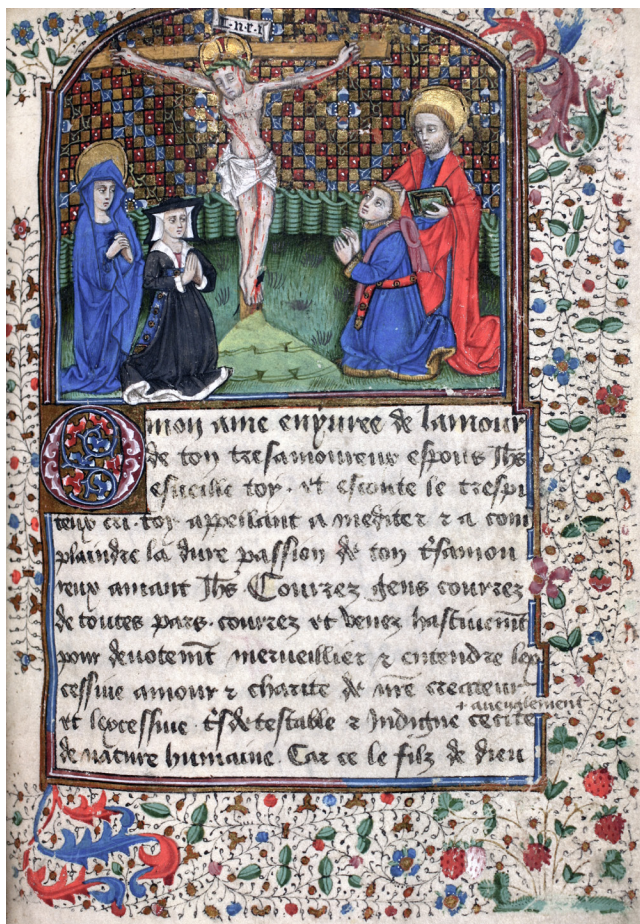 i·n·r·i
O mon ame enyuree de lamour
de ton tresamoureux espous Ihs
esueille toy · et escoute le trespi
teux cri · toy appellant a mediter ⁊ a com
plaindre la dure passion de ton tsamou
reux amant Ihs Courrez gens courrez
de toutes pars · courrez et venez hastiuemt
pour deuotemt merueillier ⁊ entendre lex
cessiue amour ⁊ charite de nre createur
+ aueuglement
et lexcessiue · ts detestable ⁊ Indigne cecite
de nature humaine · Car ce le filz de dieu